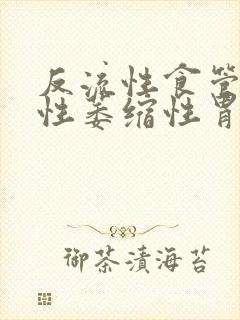 反流性食管
性萎缩性胃
御茶漬海苔